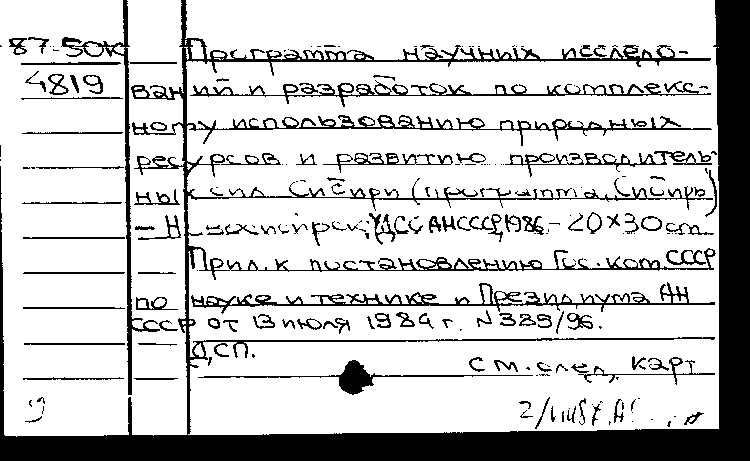 87-50К Программа научных исследо-
4819 ваний и разработок по комплекс-
ному использованию природных
ресурсов и развитию производитель-
ных сил Сибири (программа „Сибирь")
– Новосибирск, УДСС АНСССР, 1986. – 20×30 см
Прил. к постановлению Гос. ком. СССР
по науке и технике и Президиума АН
СССР от 13 июля 1984 г. N 389/96.
ДСП.
см. след. карт